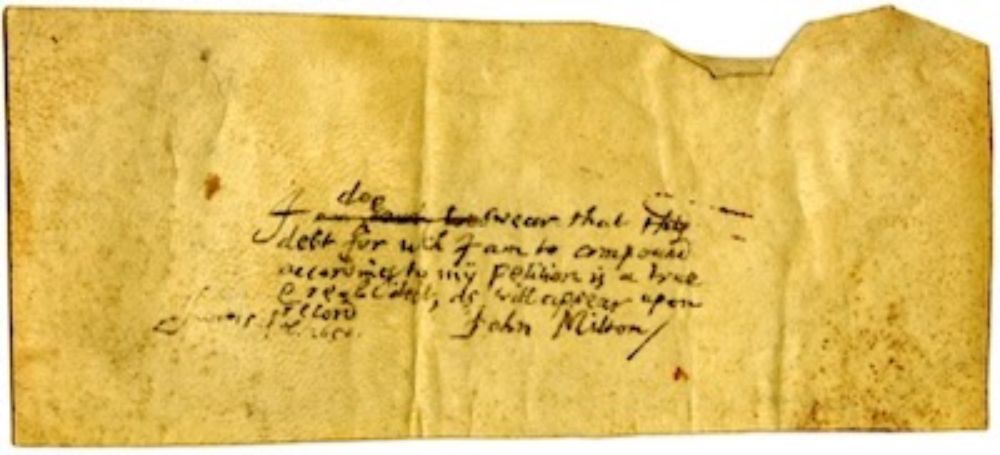 doe
I swear that this
debt for wch I am to compound
according to my petition is a true
& reall debt, as will appear upon
record John Milton